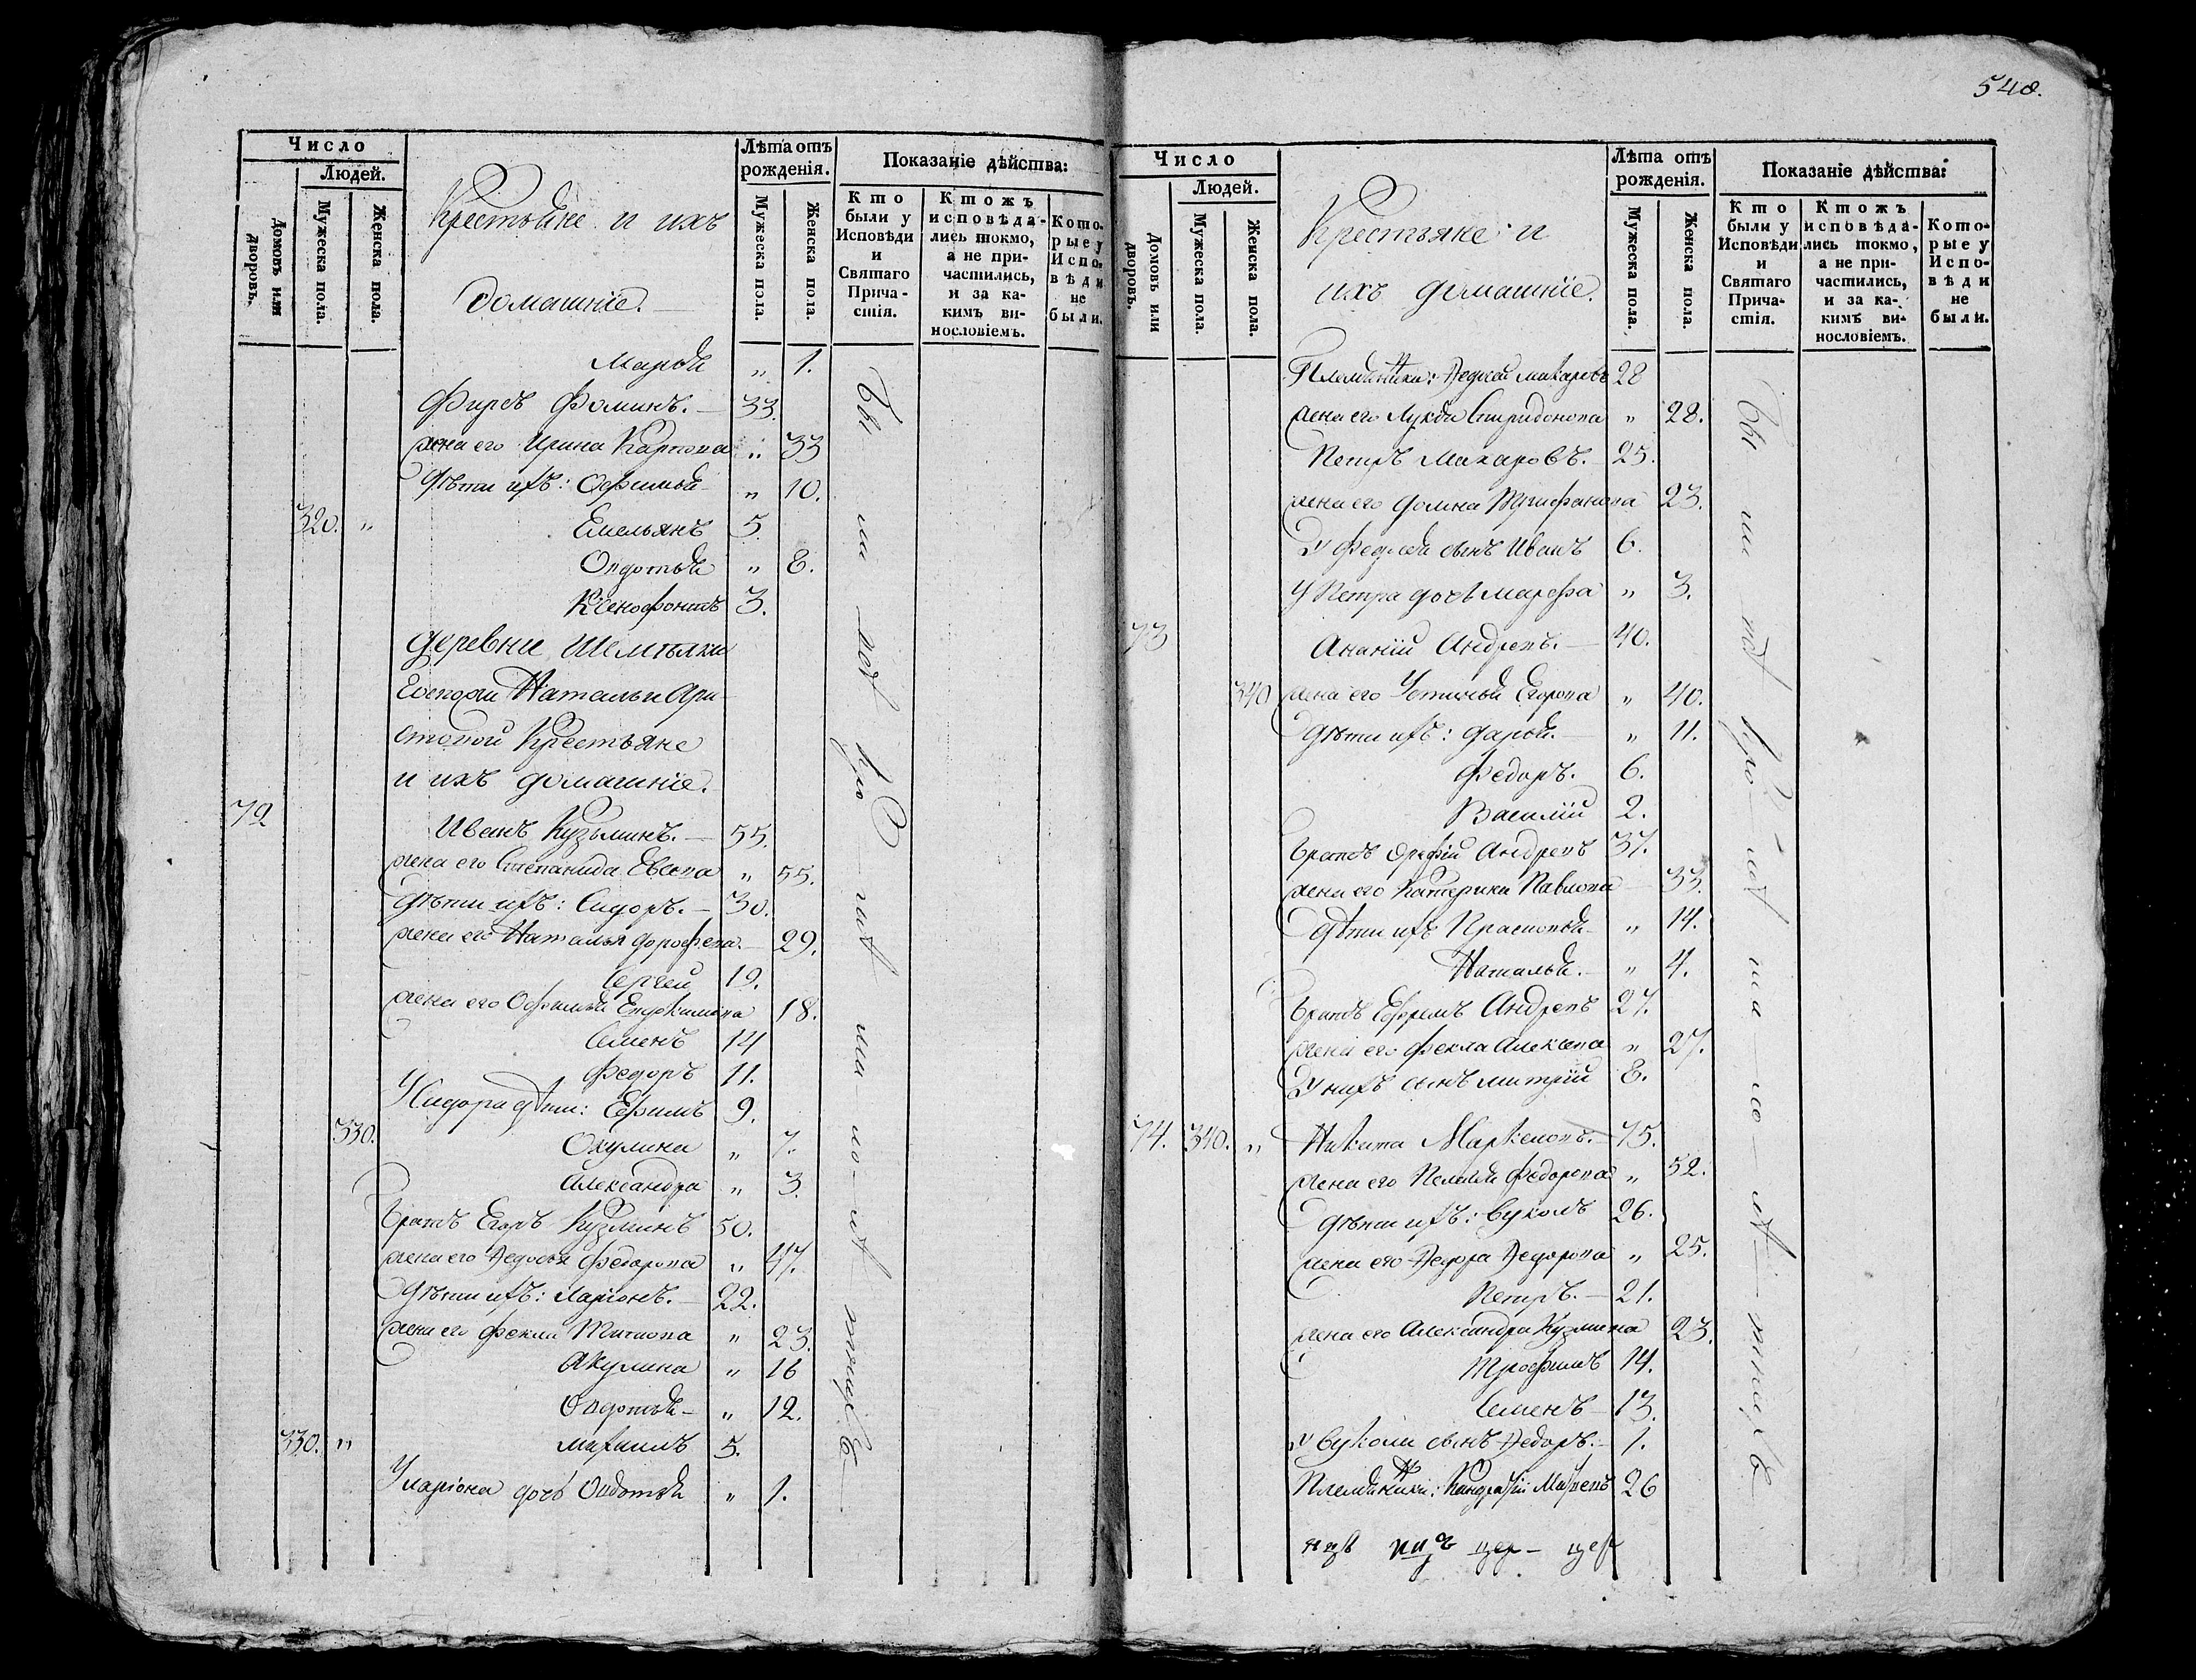 548.
Число
Людей.
Домовъ или дворовъ.
Мужеска пола.
Женска пола.
Крестьяне и ихъ
домашніе.
Лѣта отъ рожденія.
Мужеска пола.
Женска пола.
Показаніе дѣйства:
Кто были у Исповѣди и Святаго Причастія.
Ктожъ исповѣдались токмо, а не причастились, и за какимъ винословіемъ.
Которые у Исповѣди не были.
Марья „ 1.
Фирсъ Фоминъ. — 33.
жена его Ирина Карпова „ 33
Дѣти ихъ: Офимья „ 10.
320. „ Емельянъ 5.
Овдотья „ 8.
Ксенофонтъ 3.
деревни
Госпожи Натальи Ари
стовой Крестьяне
и ихъ домашніе.
72
Иванъ Кузьминъ. — 55.
жена его Степанида Евсева „ 55.
Дѣти ихъ: Сидоръ. — 30.
жена его Наталья Дорофева. — 29.
Сергей 19.
жена его Офимья Евдокимова 18.
Семенъ 14
Федоръ 11.
У Сидора дѣти: Ефимъ 9.
330. Окулина „ 7.
Александра „ 3.
братъ Егоръ Кузминъ 50.
жена его Ѳедосья Федорова „ 47.
Дѣти ихъ: Ларіонъ. — 22.
жена его Фекла Титова „ 23.
Акулина „ 16
Овдотья — „ 12.
330. „ Михаилъ 5.
У Ларіона дочь Овдотья „ 1.
бы ли
Число
Людей.
Домовъ или дворовъ.
Мужеска пола.
Женска пола.
Крестьяне и
ихъ домашніе.
Лѣта отъ рожденія.
Мужеска пола.
Женска пола.
Показаніе дѣйства:
Кто были у Исповѣди и Святаго Причастія.
Ктожъ исповѣдались токмо, а не причастились, и за какимъ винословіемъ.
Которые у Исповѣди не были.
Племянники: Ѳедосей Макаровъ 28
жена его Лукѣя Спиридонова „ 28.
Петръ Макаровъ. — 25.
жена его Домна Трифанова 23.
У Федосея сынъ Иванъ 6.
У Петра дочь Марфа „ 3.
73
Ананій Андревъ. — 40.
340 жена его Устинья Егорова „ 40.
Дѣти ихъ: Дарья. — „ 11.
Федоръ. 6.
Василій 2.
братъ Андревъ 37.
жена его Катерина Павлова — 33.
Дѣти ихъ Прасковья — „ 14.
Наталья. — „ 4.
братъ Ефремъ Андревъ 27.
жена его Фекла Алексева „ 27.
У нихъ сынъ Митрій 8.
74. 340. „ Никита Маркеловъ. — 75.
жена его Пелагея Федорова „ 52.
Дѣти ихъ: Вуколъ 26.
жена его Ѳедора Ѳедорова „ 25.
Петръ. — 21.
жена его Александра Кузмина 23.
Трофимъ 14.
Семенъ — 13.
У Вукола сынъ Ѳедоръ. — 1.
Племянники: Кандратій 26
бы ли